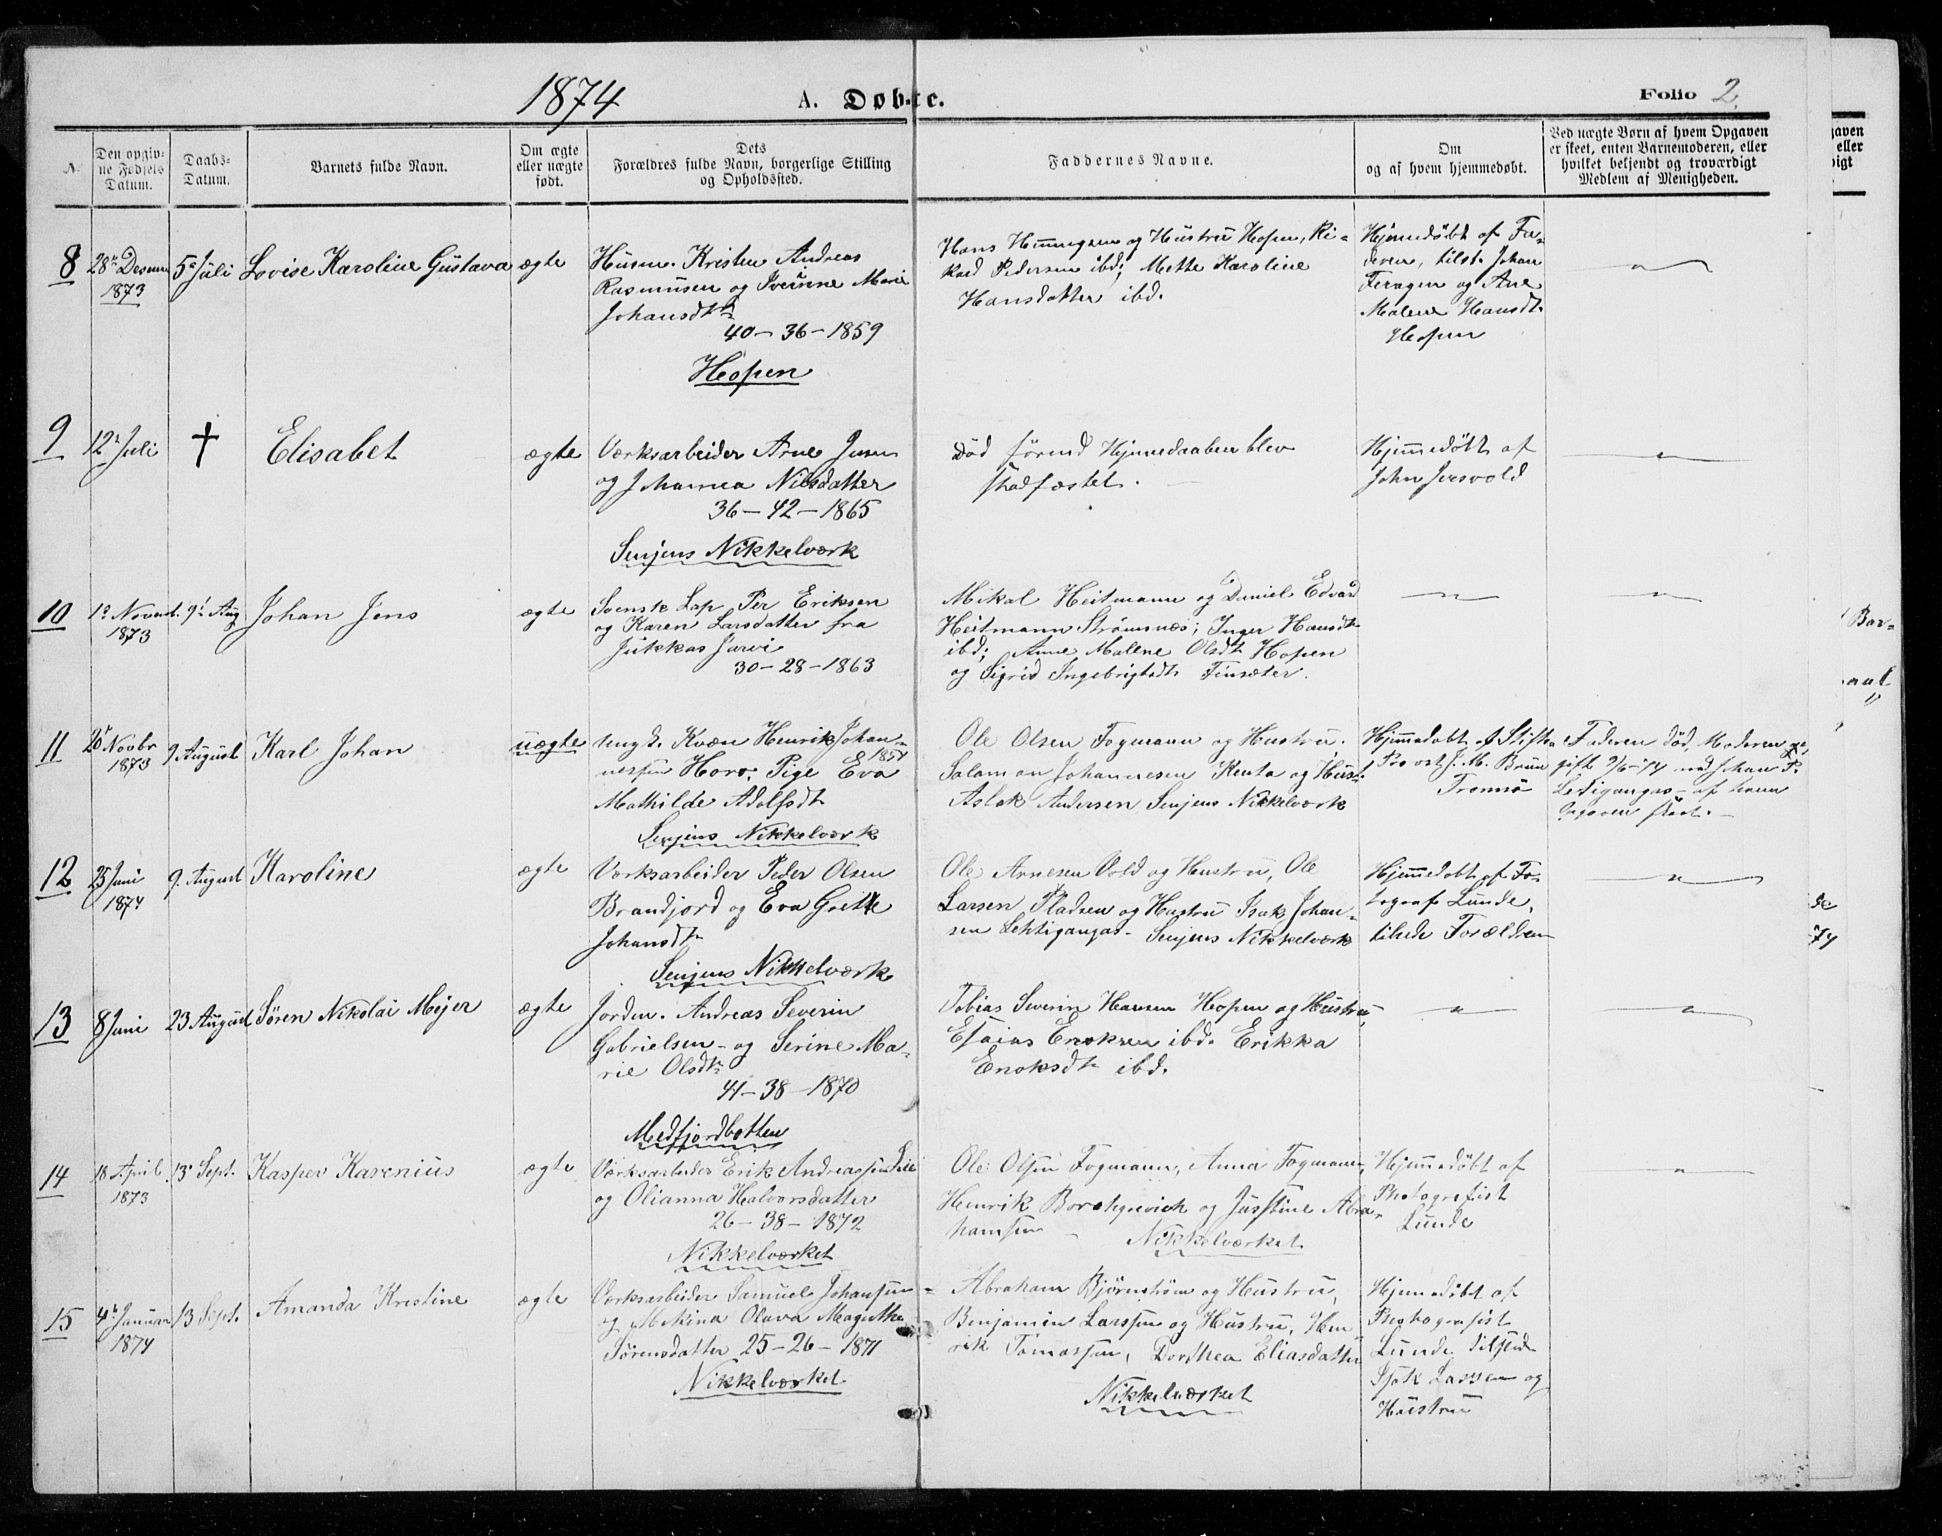 1874 A. Døbte. Folio 2.
N.
Den opgiv-
ne Fødsels
Datum.
Daabs-
Datum.
Barnets fulde Navn.
Om ægte
eller uægte
født.
Dets
Forældres fulde Navn, borgerlige Stilling
og Opholdssted.
Faddernes Navne.
Om
og af hvem hjemmedøbt.
Ved uægte Børn af hvem Opgaven
er skeet, enten Barnemoderen, eller
hvilket bekjendt og troværdigt
Medlem af Menigheden.
8
1873
5 Juli
Lovise Karoline Gustava
ægte
Husm. Kristen Andreas
Rasmusen og Marie
Johansdtr
40-36-1859
Hopen
Hans og Hustru Hopen, Ri-
kard Pedersen ibd; Mette Karoline
Hansdatter ibd.
Hjemmedøbt af Fa-
deren, tilst. Johan
og Ane
Malene Hansdtr
Hopen
9
12 Juli
†
Elisabet
ægte
Værksarbeider Arne
og Johanna Nilsdatter
36-42-1865
Senjens Nikkelværk
Død førend Hjemmedaaben blev
stadfæstet.
Hjemmedøbt af
John
10
1 Novemb.
1873
9 Aug
Johan Jens
ægte
Svensk Lap Per Eriksen
og Karen Larsdatter fra
Jukkas Jarvi
30-28-1863
Mikal Heitmann og Daniel Edvard
Heitmann Strømsnæs; Inger Hansdtr
ibd; Anne Malene Olsdtr Hopen
og Sigrid Ingebrigtsdtr Finsæter.
11
20 Novbr
1873
9 August
Karl Johan
uægte
Ungk. Kvæn Henrik Johan-
nessen Pige Eva
Mathilde Adolfsdtr
Senjens Nikkelværk
Ole Olsen Fogmann og Hustru.
Salamon Johannesen Kenta og Hust.
Aslak Andersen Senjens Nikkelværk
Hjemmedøbt af Stifts
Provst J. M. Brun
Tromsø
Faderen død, Moderen
gift 9/6-74 med Johan P.
Letigangas - af ham
Opgaven skeet.
12
25 Juni
1874
9. August
Karoline
ægte
Værksarbeider Peder Olsen
Brandfjord og Eva Grette
Johansdtr
Senjens Nikkelværk
Ole Arnesen Vold og Hustru, Ole
Larsen Pladsen og Hustru Isak Johan-
sen Lehtigangas - Senjens Nikkelværk
Hjemmedøbt af Fo-
tograf Lunde,
tilstede Forældrene
13
8 Juni
23 August
Søren Nikolai Mejer
ægte
Jordm. Andreas Severin
Gabrielsen og Serine Ma-
rie Olsdtr
41-38-1870
Medfjordbotten
Tobias Severin Hansen Hopen og Hustru,
Esaias Enoksen ibd. Erikka
Enoksdtr ibd.
14
18 April
1873
13 Sept.
Kasper Karenius
ægte
Værksarbeider Erik Andreassen
og Olianna Halvorsdatter
26-38-1872
Nikkelværket
Ole Olsen Fogmann, Anna Fogmann,
Henrik Borchgrevick og Justine Abra-
hamsen
Nikkelværket
Hjemmedøbt af
Photografist
Lunde
15
4 Januar
1874
13 Sept.
Amanda Kristine
ægte
Værksarbeider Samuel Johansen
og Olava Magrethe
Sørensdatter 25-26-1871
Nikkelværket
Abraham Bjørnstrøm og Hustru,
Benjamin Larssen og Hustru, Hen
rik Tomassen, Dorthea Eliasdatter
Nikkelværket
Hjemmedøbt af
Photografist
Lunde tilstede
Lassen og
Hustru